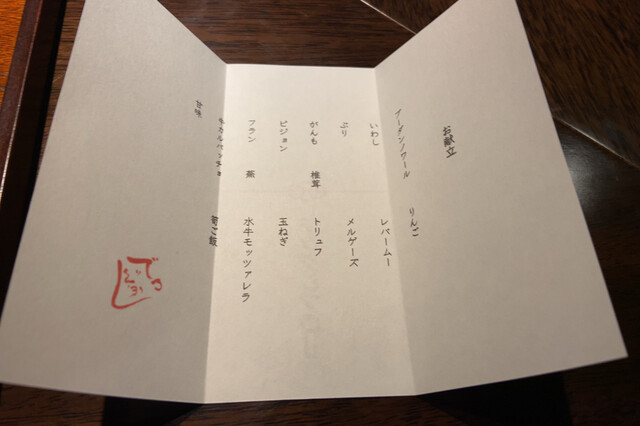 お献立
ブーダンノワール りんご
いわし レバームー
ぶり メルゲーズ
がんも 椎茸 トリュフ
ピジョン 玉ねぎ
フラン 蕪 水牛モッツァレラ
ご飯
甘味